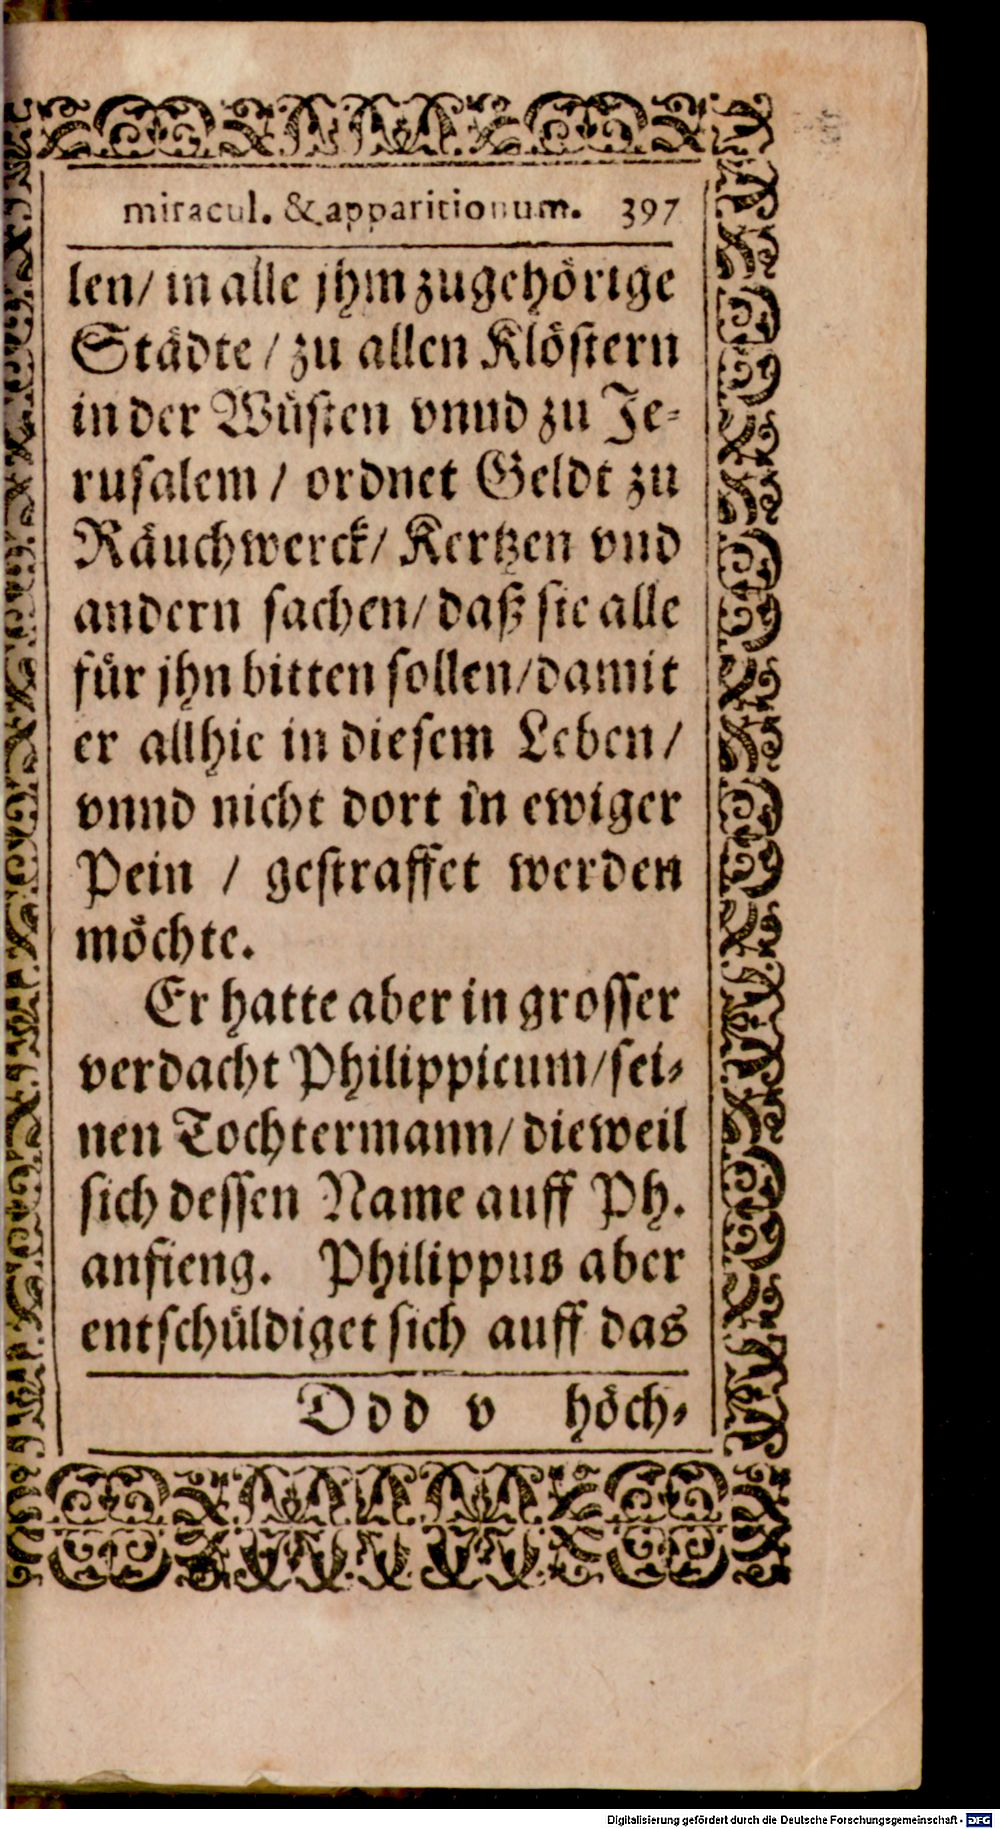 miracul. & apparitionum. 397
len/ in alle jhm zugehörige
Städte / zu allen Klöstern
in der Wüsten vnnd zu Je-
rusalem / ordnet Geldt zu
Räuchwerck/ Kertzen vnd
andern sachen/ daß sie alle
für jhn bitten sollen/damit
er allhie in diesem Leben/
vnnd nicht dort in ewiger
Pein / gestraffet werden
möchte.
Er hatte aber in grosser
verdacht Philippicum/sei-
nen Tochtermann/ dieweil
sich dessen Name auff Ph.
anfieng. Philippus aber
entschüldiget sich auff das
Ddd v höch-
Digitalisierung gefördert durch die Deutsche Forschungsgemeinschaft - DFG